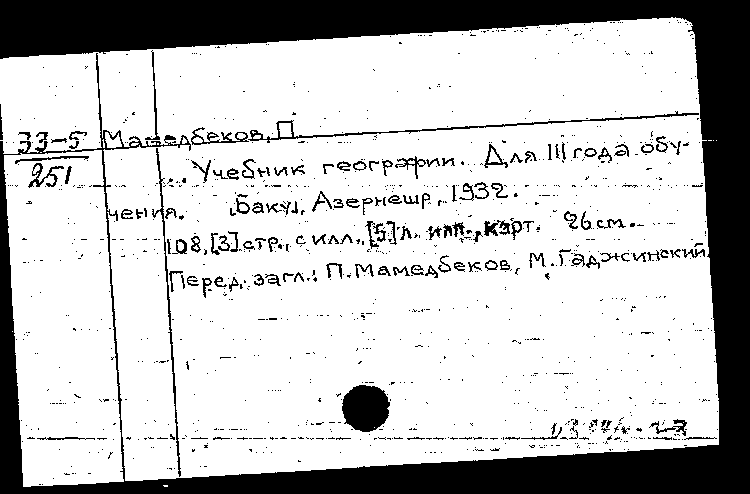 33-5 Мамедбеков, П.
251 ... Учебник географии. Для III года обу-
чения. [Баку], Азернешр, 1932.
108, [3] стр., с илл., [5] л. илл., карт. 26 см.
Перед. загл.: П. Мамедбеков, М. Гаджинский.